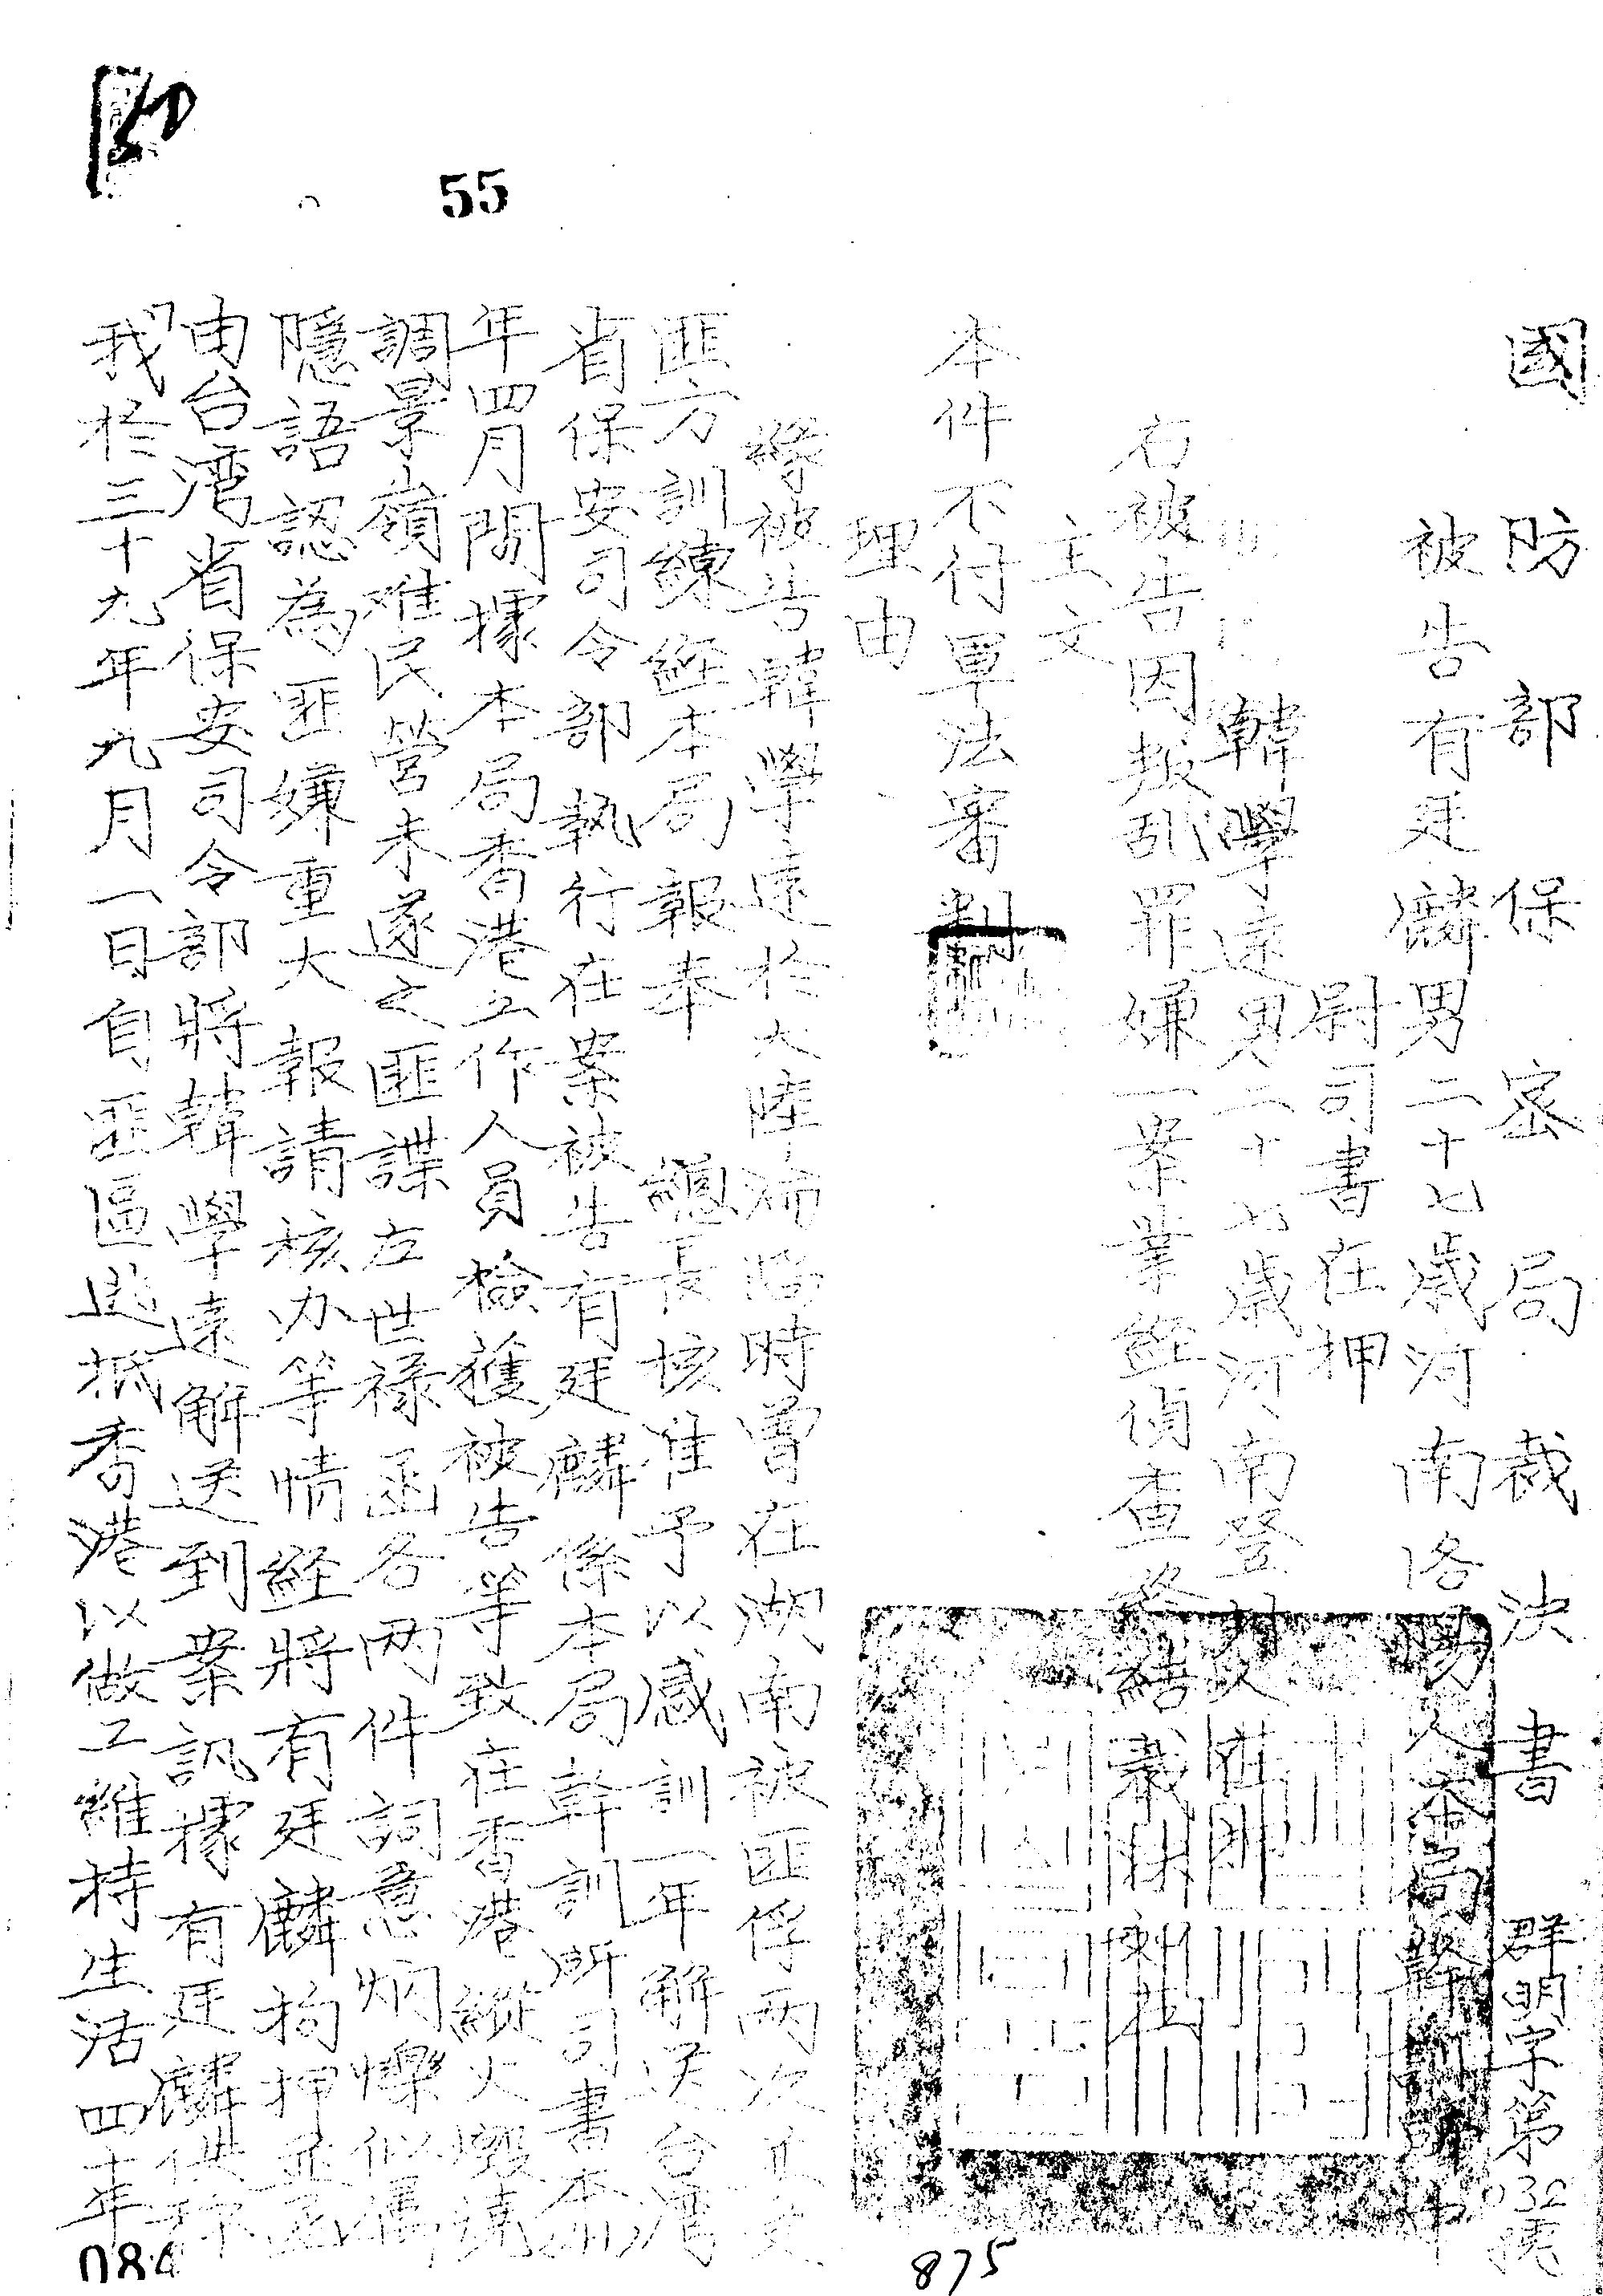 55
國防部保密局裁決書 群明字第032號
被告有廷麟男二十七歲河南洛陽人本局幹訓所中
尉司書在押
韓學遠男二十七歲河南登封人在押
右被告因叛乱罪嫌一案業經偵查終結裁決如左
主文
本件不付軍法審判
理由
緣被告韓學遠於大陸淪陷時曾在湖南被匪俘兩次
匪方訓練經本局報奉 總長核准予以感訓一年解送台灣
省保安司令部執行在案被告有廷麟係本局幹訓所司書本
年四月間據本局香港工作人員檢獲被告等致在香港縱火燬燒
調景嶺难民營未遂之匪諜左世祿函各两件詞意炳爍似屬
隱語認為匪嫌重大報請核办等情經將有廷麟拘押並函
由台灣省保安司令部將韓學遠解送到案訊據有廷麟供称
「我於三十九年九月一日自匪區逃抵香港以做工維持生活四十年
084
875